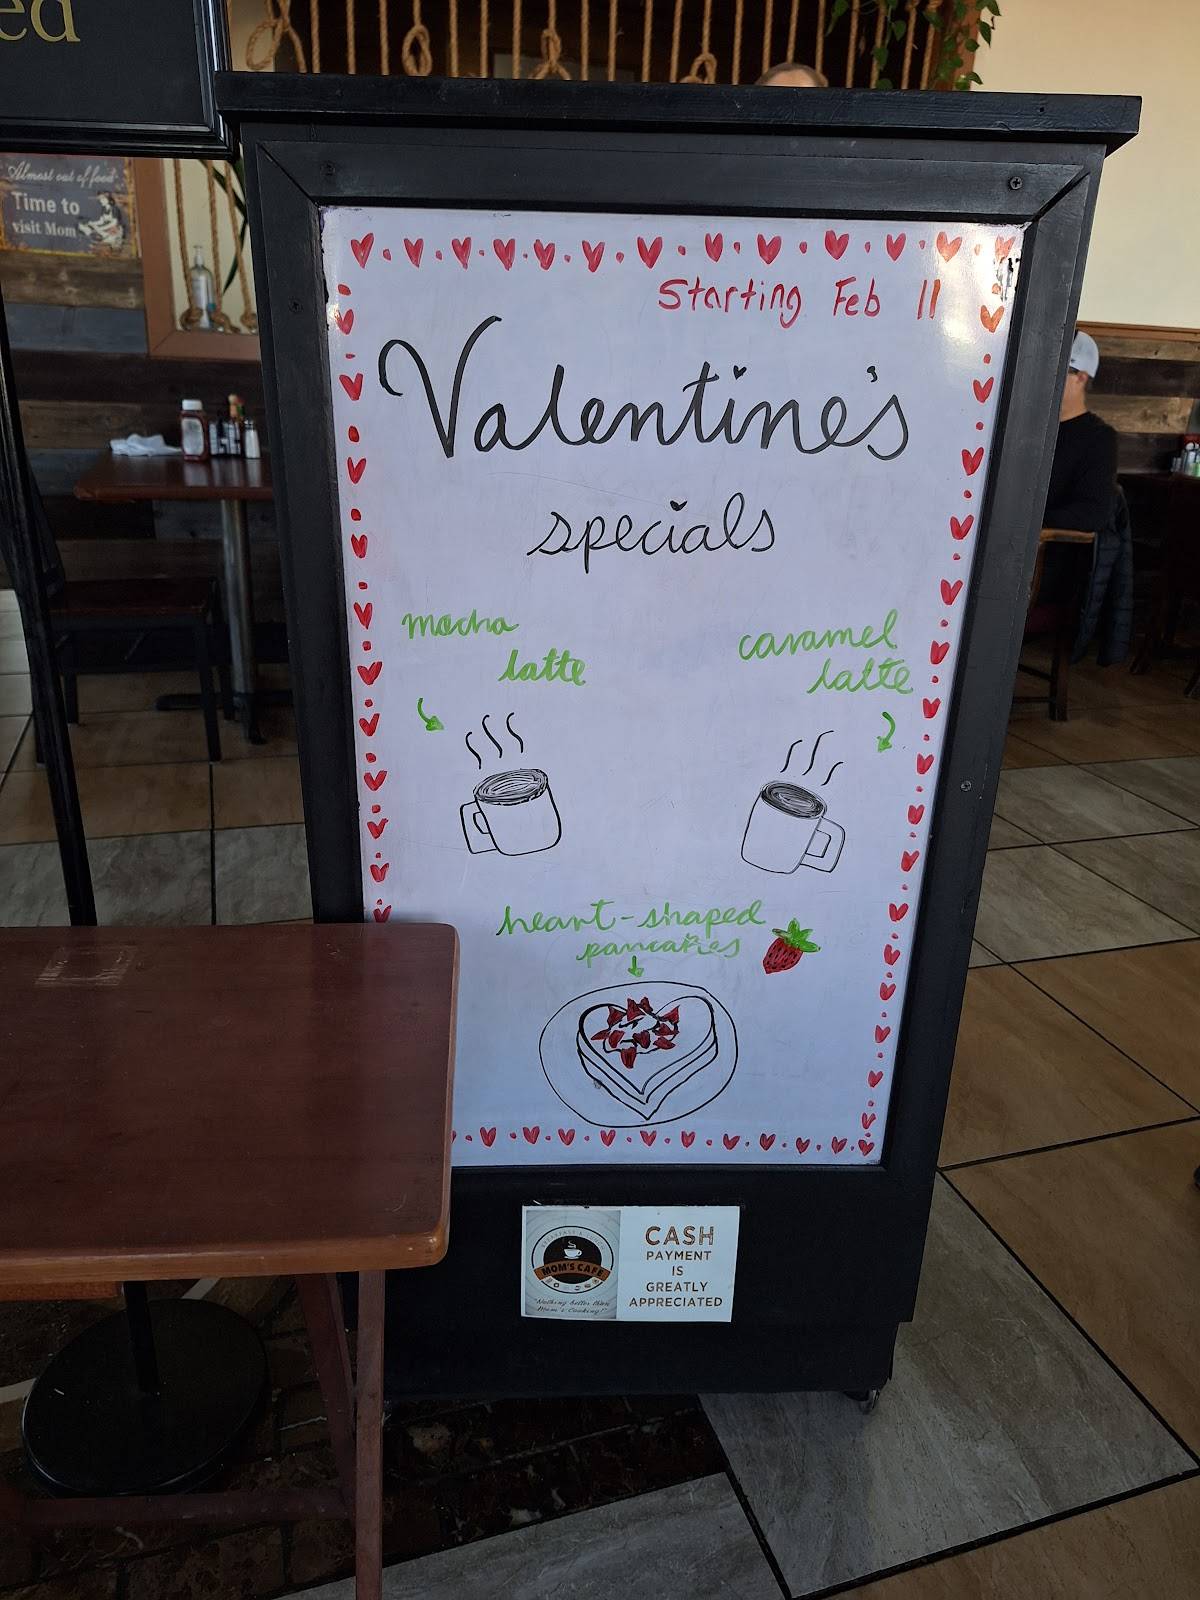 ed
Almost out of food
Time to
visit Mom
Starting Feb 11
Valentine's
specials
mocha
latte
caramel
latte
heart-shaped
pancakes
MOM'S CAFE
"Nothing better than
Mom's Cooking!"
CASH
PAYMENT
IS
GREATLY
APPRECIATED